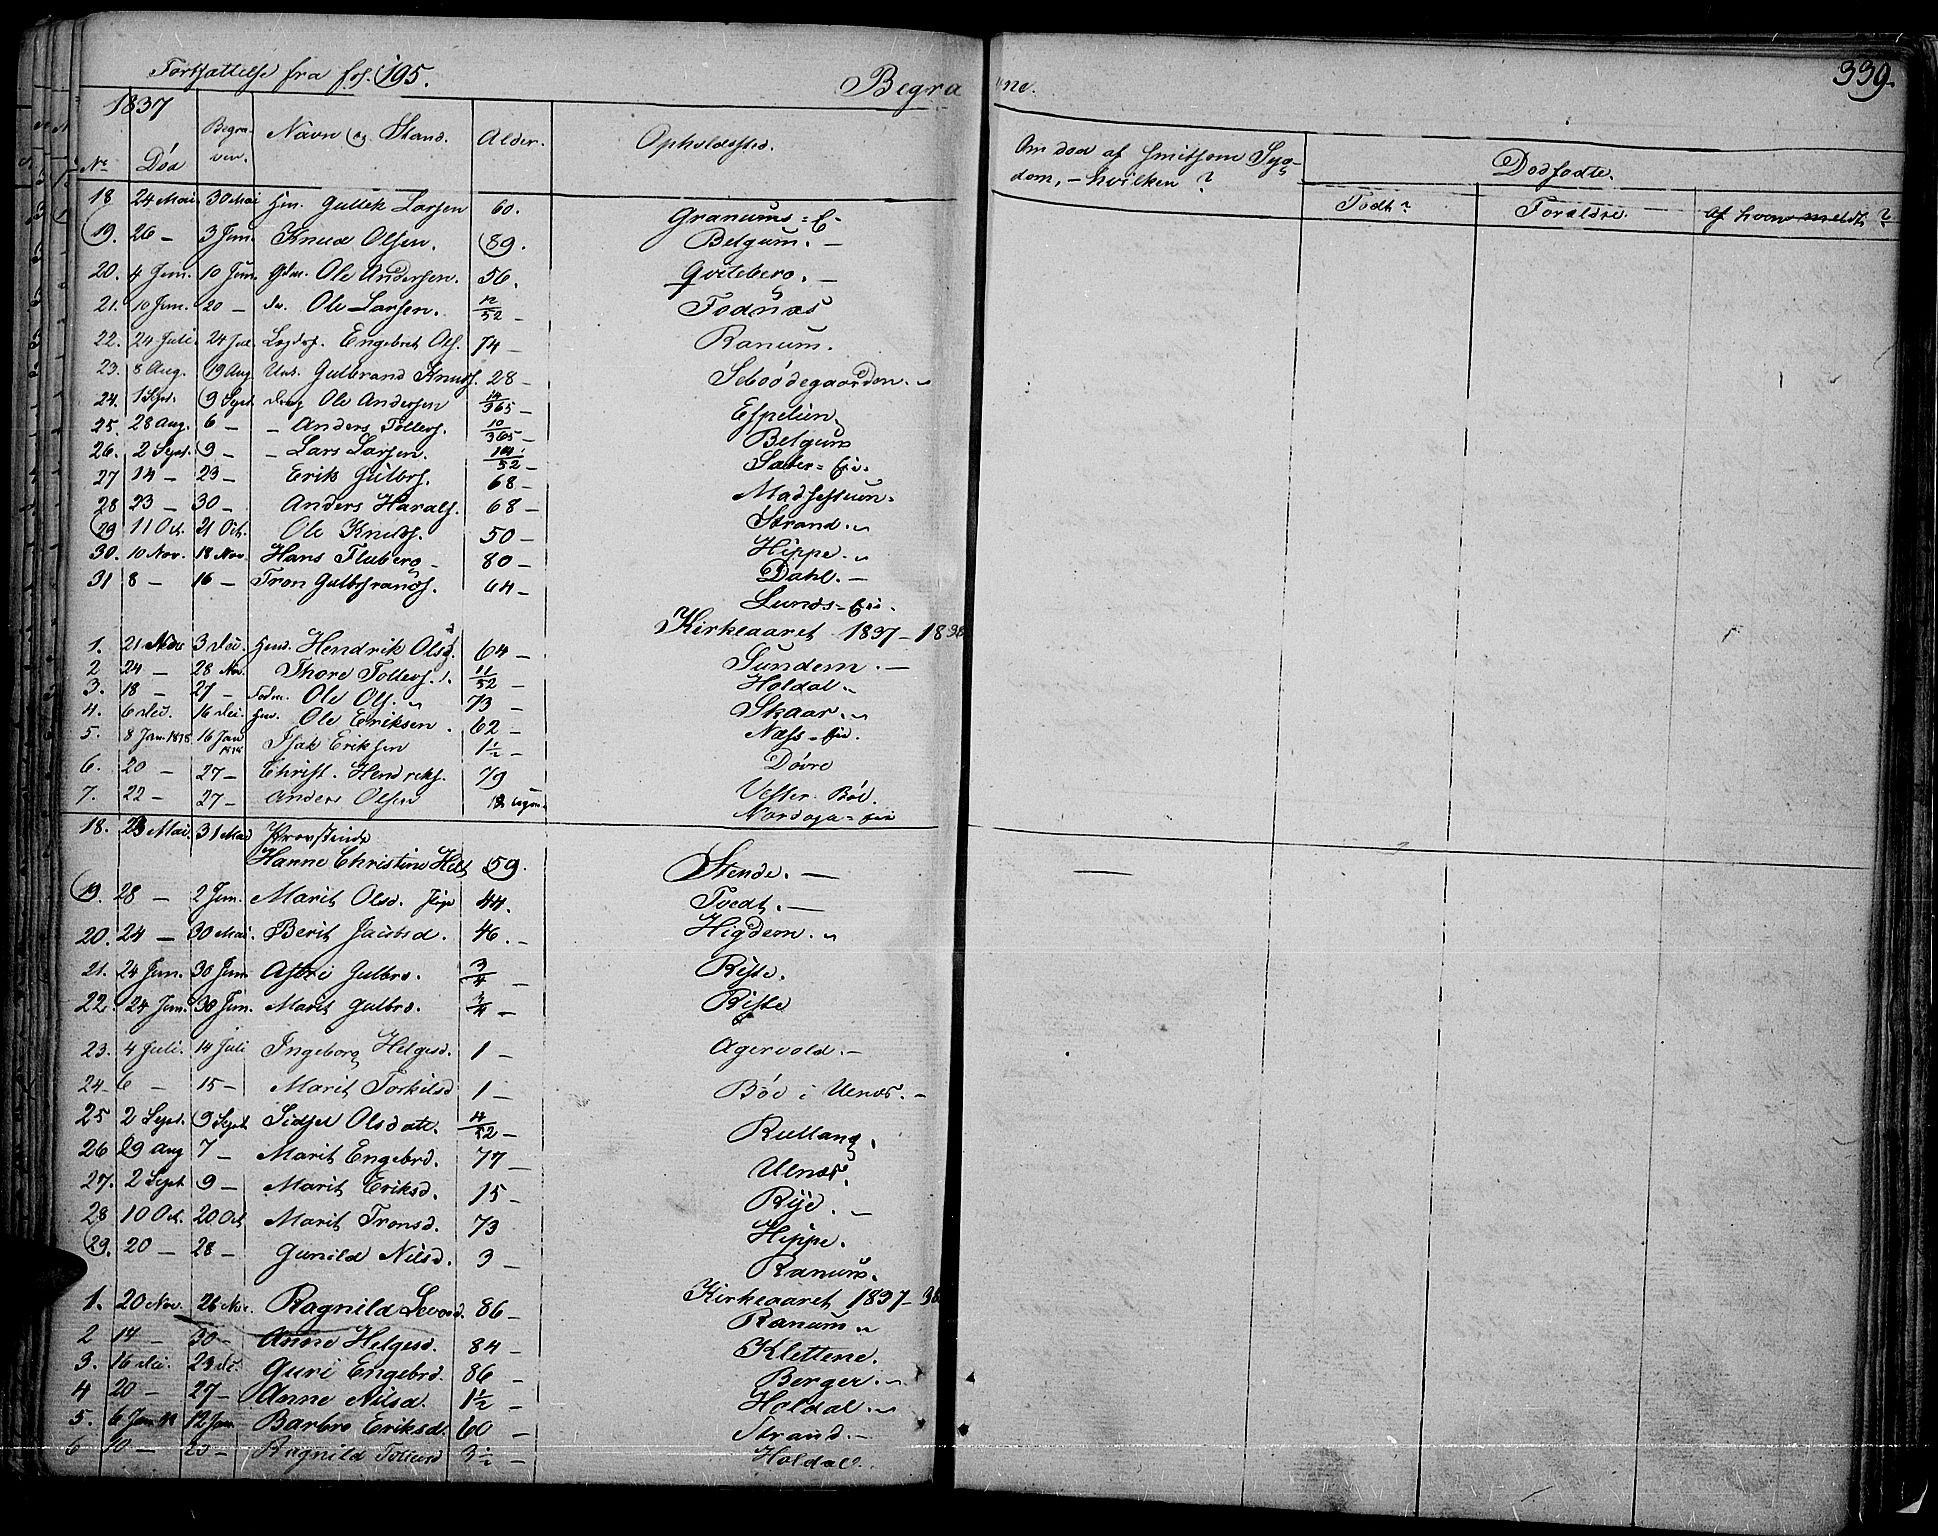 Fortsættelse fra fol. 195. Begravne. 339.
1837
No Død Begraven. Navn og Stand. Alder. Opholdssted. Om død af smitsom Sygdom, - hvilken? Dødfødte.
Født? Forældre. Af hvem meldt?
18 24 Mai 30 Mai Gullek Larsen 60. Granums=E-
19. 26 - 3 Jun. Knud Olsen. 89. Belgum. -
20. 4 Jun. 10 Jun. Gdm. Ole Andersen. 56. Qvileberg. -
21. 10 Jun. 20 - do. Ole Larsen. 12/52 - Fodnæs
22. 24 Juli. 24 Jul. Engebret Ols. 74 - Ranum.
23. 8 Aug. 19 Aug Gulbrand Knuds. 28 -
24. 1 Sept. 9 Sept Ole Andersen 14/365 - Espelien
25. 28 Aug. 6 - - Anders Tollevs. 10/365 - Belgum
26. 2 Sept. 9 - - Lars Larsen. /52 - Sæter=Eie.
27 14 - 23 - Erik Gulbrs. 68 -
28 23 - 30 - Anders Harals. 68 - Strand.
29 11 Oct. 21 Oct. Ole Knuds. 50 - Hippe.
30. 10 Nov. 18 Nov. Hans Fluberg - 80 - Dahl. -
31 8 - 16 - Tron 64 - Lunds=Eie.
Kirkeaaret 1837-1838
1. 21 Nov 3 Dec. Hendrik Ols. 64 - Sundem. -
2 24 - 28 Nov. Thore Tollevs. 11/52 - Holdal.
3. 18 - 27 - Ole Ols. 73 - Skaar.
4. 6 Dec. 16 Dec. Ole Eriksen. 62 - Næss=Eie.
5. 8 Jan. 1838 16 Jan 1838 Isak Eriksen 1½ - Dövre
6. 20 - 27 - Christ. Hendriks. 79 - Vester Böe.
7. 22 - 27 - Anders Olsen 12 ugm. Nordaga=Eie
18. 23 Mai. 31 Mai Provstinde
Hanne Christine 59. Stende. -
19. 28 - 2 Jun. Marit Olsd. 44. Tvedt. -
20. 24 - 30 Mai. Berit Jacobsd. 46. - Higdem.
21. 24 Jun. 30 Jun. Astri Gulbrd. 3/4 - Riste.
22. 24 Jun. 30 Jun. Marit Gulbrd. 3/4 - Riste
23. 4 Juli. 14 Juli Ingeborg Helgesd. 1 - Agervold. -
24 6 - 15 - Marit Torkilsd 1 - Böe i Ulnæs. -
25 2 Sept. 9 Sept Sidsel Olsdatr. 4/52 - Rulland.
26 29 Aug 7 - Marit Engebrd. 77 - Ulnæs.
27. 2 Sept 9 - Marit Eriksd. 15 - Rye. -
28 10 Oct. 20 Oct Marit Tronsd. 73 Hippe.
29. 20 - 28 - Gunild Nilsd. 3 - Ranum.
Kirkeaaret 1837-38
1. 20 Nov. 26 Nov. Ragnild 86 - Ranum.
2 14 - 30 - Anne Helgesd. 84 - Klettene.
3. 16 Dec. 23 Dec. Guri Engebrd. 86 - Berger.
4 20 - 27 - Anne Nilsd. 1½ - Holdal.
5. 6 Jan 12 Jan Barbro Eriksd. 60 - Strand.
6 10 - 23 - Ragnild 3½ - Holdal.